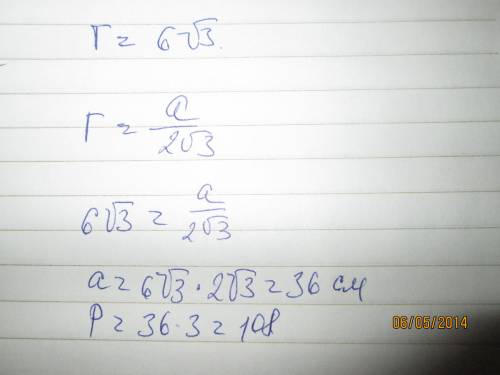 r = 6√3.
r = a/2√3
6√3 = a/2√3
a = 6√3 · 2√3 = 36 см
P = 36·3 = 108
06/05/2014